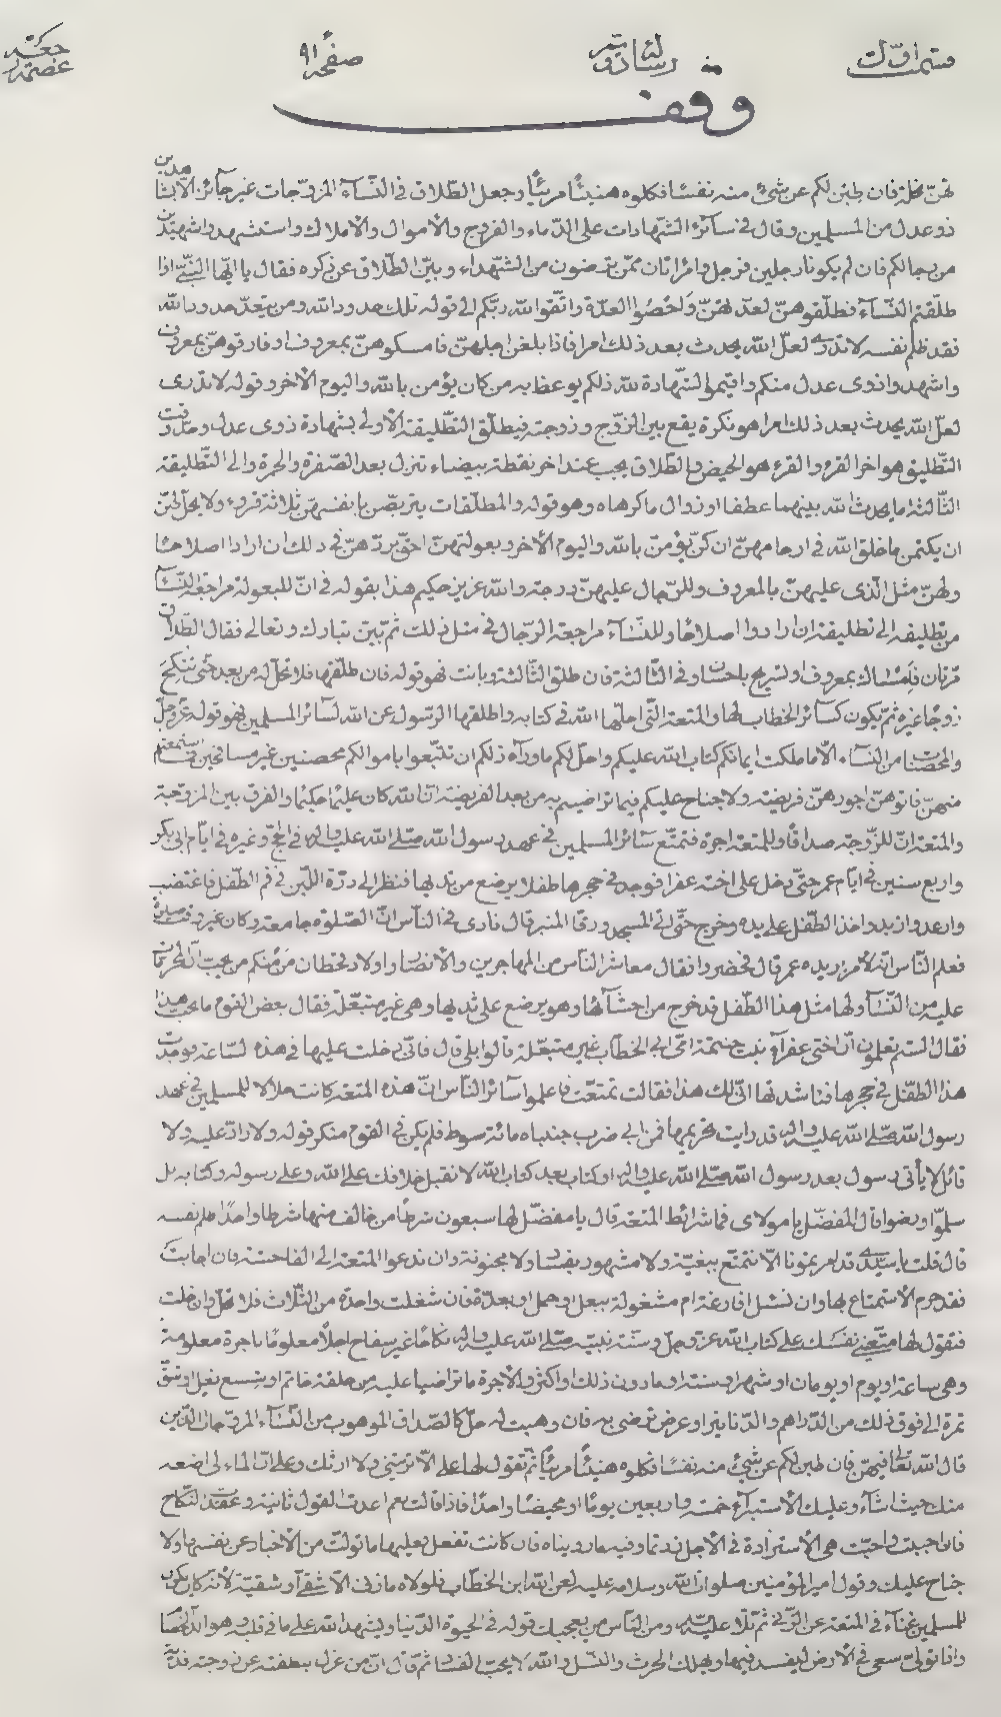 قسمت اول رساله رقیه صفحه ۹۱
وقف
لهنّ نحلة فان طبن لكم عن شئ منه نفسًا فكلوه هنيئًا مريئًا وجعل الطّلاق فى النّسآء المزوّجات غير جآئز الّا بشاهدين
ذو عدل من المسلمين وقال فى سآئر الشّهادات على الدّماء والفروج والاموال والاملاك واستشهدوا شهيدين
من رجالكم فان لم يكونا رجلين فرجل وامرأتان ممّن ترضون من الشّهداء وبيّن الطّلاق عزّ ذكره فقال يا ايّها النّبىّ اذا
طلّقتم النّسآء فطلّقوهنّ لعدّتهنّ واحصوا العدّة واتّقوا الله ربّكم الى قوله تلك حدود الله ومن يتعدّ حدود الله
فقد ظلم نفسه لا تدرى لعلّ الله يحدث بعد ذلك امرا فاذا بلغن اجلهنّ فامسكوهنّ بمعروف او فارقوهنّ بمعروف
واشهدوا ذوى عدل منكم واقيموا الشّهادة لله ذلكم يوعظ به من كان يؤمن بالله واليوم الآخر وقوله لا تدرى
لعلّ الله يحدث بعد ذلك امرا هو نكرة يقع بين الزّوج وزوجته فيطلّق التّطليقة الاولى بشهادة ذوى عدل وحدّ وقت
التّطليق هو اخر القرء والقرء هو الحيض والطّلاق يجب عند اخر نقطة بيضاء تنزل بعد الصّفرة والحمرة والى التّطليقة
الثّالثة ما يحدث الله بينهما عطفا او زوال ما كرهاه وهو قوله والمطلّقات يتربّصن بانفسهنّ ثلاثة قروء ولا يحلّ لهنّ
ان يكتمن ما خلق الله فى ارحامهنّ ان كنّ يؤمنّ بالله واليوم الآخر وبعولتهنّ احقّ بردّهنّ فى ذلك ان ارادوا اصلاحًا
ولهنّ مثل الّذى عليهنّ بالمعروف وللرّجال عليهنّ درجة والله عزيز حكيم هذا بقوله فى انّ للبعولة مراجعة النّسآء
من تطليقه الى تطليقة ان ارادوا اصلاحًا وللنّسآء مراجعة الرّجال فى مثل ذلك ثمّ بيّن تبارك وتعالى فقال الطّلاق
مرّتان فامساك بمعروف او تسريح باحسان وفى الثّالثة فان طلق الثّالثة وبانت فهو قوله فان طلّقها فلا تحلّ له من بعد حتّى تنكح
زوجًا غيره ثمّ يكون كسآئر الخطاب لها والمتعة الّتى احلّها الله فى كتابه واطلقها الرّسول عن الله لسآئر المسلمين فهو قوله عزّ وجلّ
والمحصنات من النّسآء الّا ما ملكت ايمانكم كتاب الله عليكم واحلّ لكم ما ورآء ذلكم ان تبتغوا باموالكم محصنين غير مسافحين فما استمتعتم
منهنّ فاتوهنّ اجورهنّ فريضة ولا جناح عليكم فيما تراضيتم به من بعد الفريضة انّ الله كان عليمًا حكيمًا والفرق بين المزوّجة
والمتعة انّ للزّوجة صداقًا وللمتعة اجرة فتمتّع سآئر المسلمين فى عهد رسول الله صلّى الله عليه واله فى الحجّ وغيره فى ايّام ابى بكر
واربع سنين فى ايّام عمر حتّى دخل على اخته عفرا فوجد فى حجرها طفلا يرضع من ثديها فنظر الى درّة اللّبن فى فم الطّفل فاغتضب
وارعد وازبد واخذ الطّفل على يده وخرج حتّى اتى المسجد ورقا المنبر قال نادى فى النّاس انّ الصّلوة جامعة وكان غير وقت صلوة
فعلم النّاس انّه لامر يريده عمر قال فحضروا فقال معاشر النّاس من المهاجرين والانصار اولاد قحطان من منكم من يحبّ
عليه من النّسآء ولها مثل هذا الطّفل قد خرج من احشآئها وهو يرضع على ثديها وهى غير متبعّلة فقال بعض القوم ما نحبّ هذا
فقال الستم تعلمون انّ اختى عفرآء بنت حنتمة امّى ابى الخطّاب غير متبعّلة قالوا بلى قال فانّى دخلت عليها فى هذه السّاعة فوجدت
هذا الطّفل فى حجرها فناشدتها انّى لك هذا فقالت تمتّعت فاعلموا سآئر النّاس انّ هذه المتعة كانت حلالا للمسلمين فى عهد
رسول الله صلّى الله عليه واله قد رايت تحريمها فمن ابى ضرب جنباه مائة سوط فلم يكن فى القوم منكر قوله ولا رادّ عليه ولا
قائل لا يأتى رسول بعد رسول الله صلّى الله عليه واله او كتاب بعد كتاب الله لا نقبل خلافك على الله وعلى رسوله وكتابه بل
سلّموا ورضوا قال المفضّل يا مولاى فما شرائط المتعة قال يا مفضّل لها سبعون شرطًا من خالف منها شرطا واحدًا ظلم نفسه
قال قلت يا سيّدى قد امرتمونا الّا نتمتّع ببغيّة ولا مشهورة بفساد ولا مجنونة وان ندعوا المتعة الى الفاحشة فان اجابت
فقد حرم الاستمتاع بها وان نسئل افارغة ام مشغولة ببعل او حمل او بعدّة فان شغلت واحدة من الثّلاث فلا تحلّ وان خلت
فتقول لها متّعينى نفسك على كتاب الله عزّ وجلّ وسنّة نبيّه صلّى الله عليه واله نكاحًا غير سفاح اجلًا معلومًا باجرة معلومة
وهى ساعة او يوم او يومان او شهر او سنة او ما دون ذلك او اكثر والاجرة ما تراضيا عليه من حلقة خاتم او شسع نعل او شقّ
تمرة الى فوق ذلك من الدّراهم والدّنانير او عرض ترضى به فان وهبت له حلّ كالصّداق الموهوب من النّسآء المزوّجات الّذين
قال الله تعالى فيهنّ فان طبن لكم عن شئ منه نفسًا فكلوه هنيئًا مريئًا ثمّ تقول لها على الّا ترثينى ولا ارثك وعلى انّ المآء لى اضعه
منك حيث اشآء وعليك الاستبرآء خمسة واربعين يومًا او محيضًا واحدًا فاذا قالت نعم اعدت القول ثانية وعقدت النّكاح
فان احببت واحبّت هى الاستزادة فى الاجل زدتما وفيه ما رويناه فان كانت تفعل فعليها ما تولّت من الاخبار عن نفسها ولا
جناح عليك وقول امير المؤمنين صلوات الله وسلامه عليه لعن الله ابن الخطّاب فلولاه ما زنى الّا شقىّ او شقيّة لانّه كان يكون
للمسلمين غنآء فى المتعة عن الزّنى ثمّ تلا عليه ومن النّاس من يعجبك قوله فى الحيوة الدّنيا ويشهد الله على ما فى قلبه وهو الدّ الخصام
واذا تولّى سعى فى الارض ليفسد فيها ويهلك الحرث والنّسل والله لا يحبّ الفساد ثمّ قال انّ من عزل بنطفته عن زوجته فدية